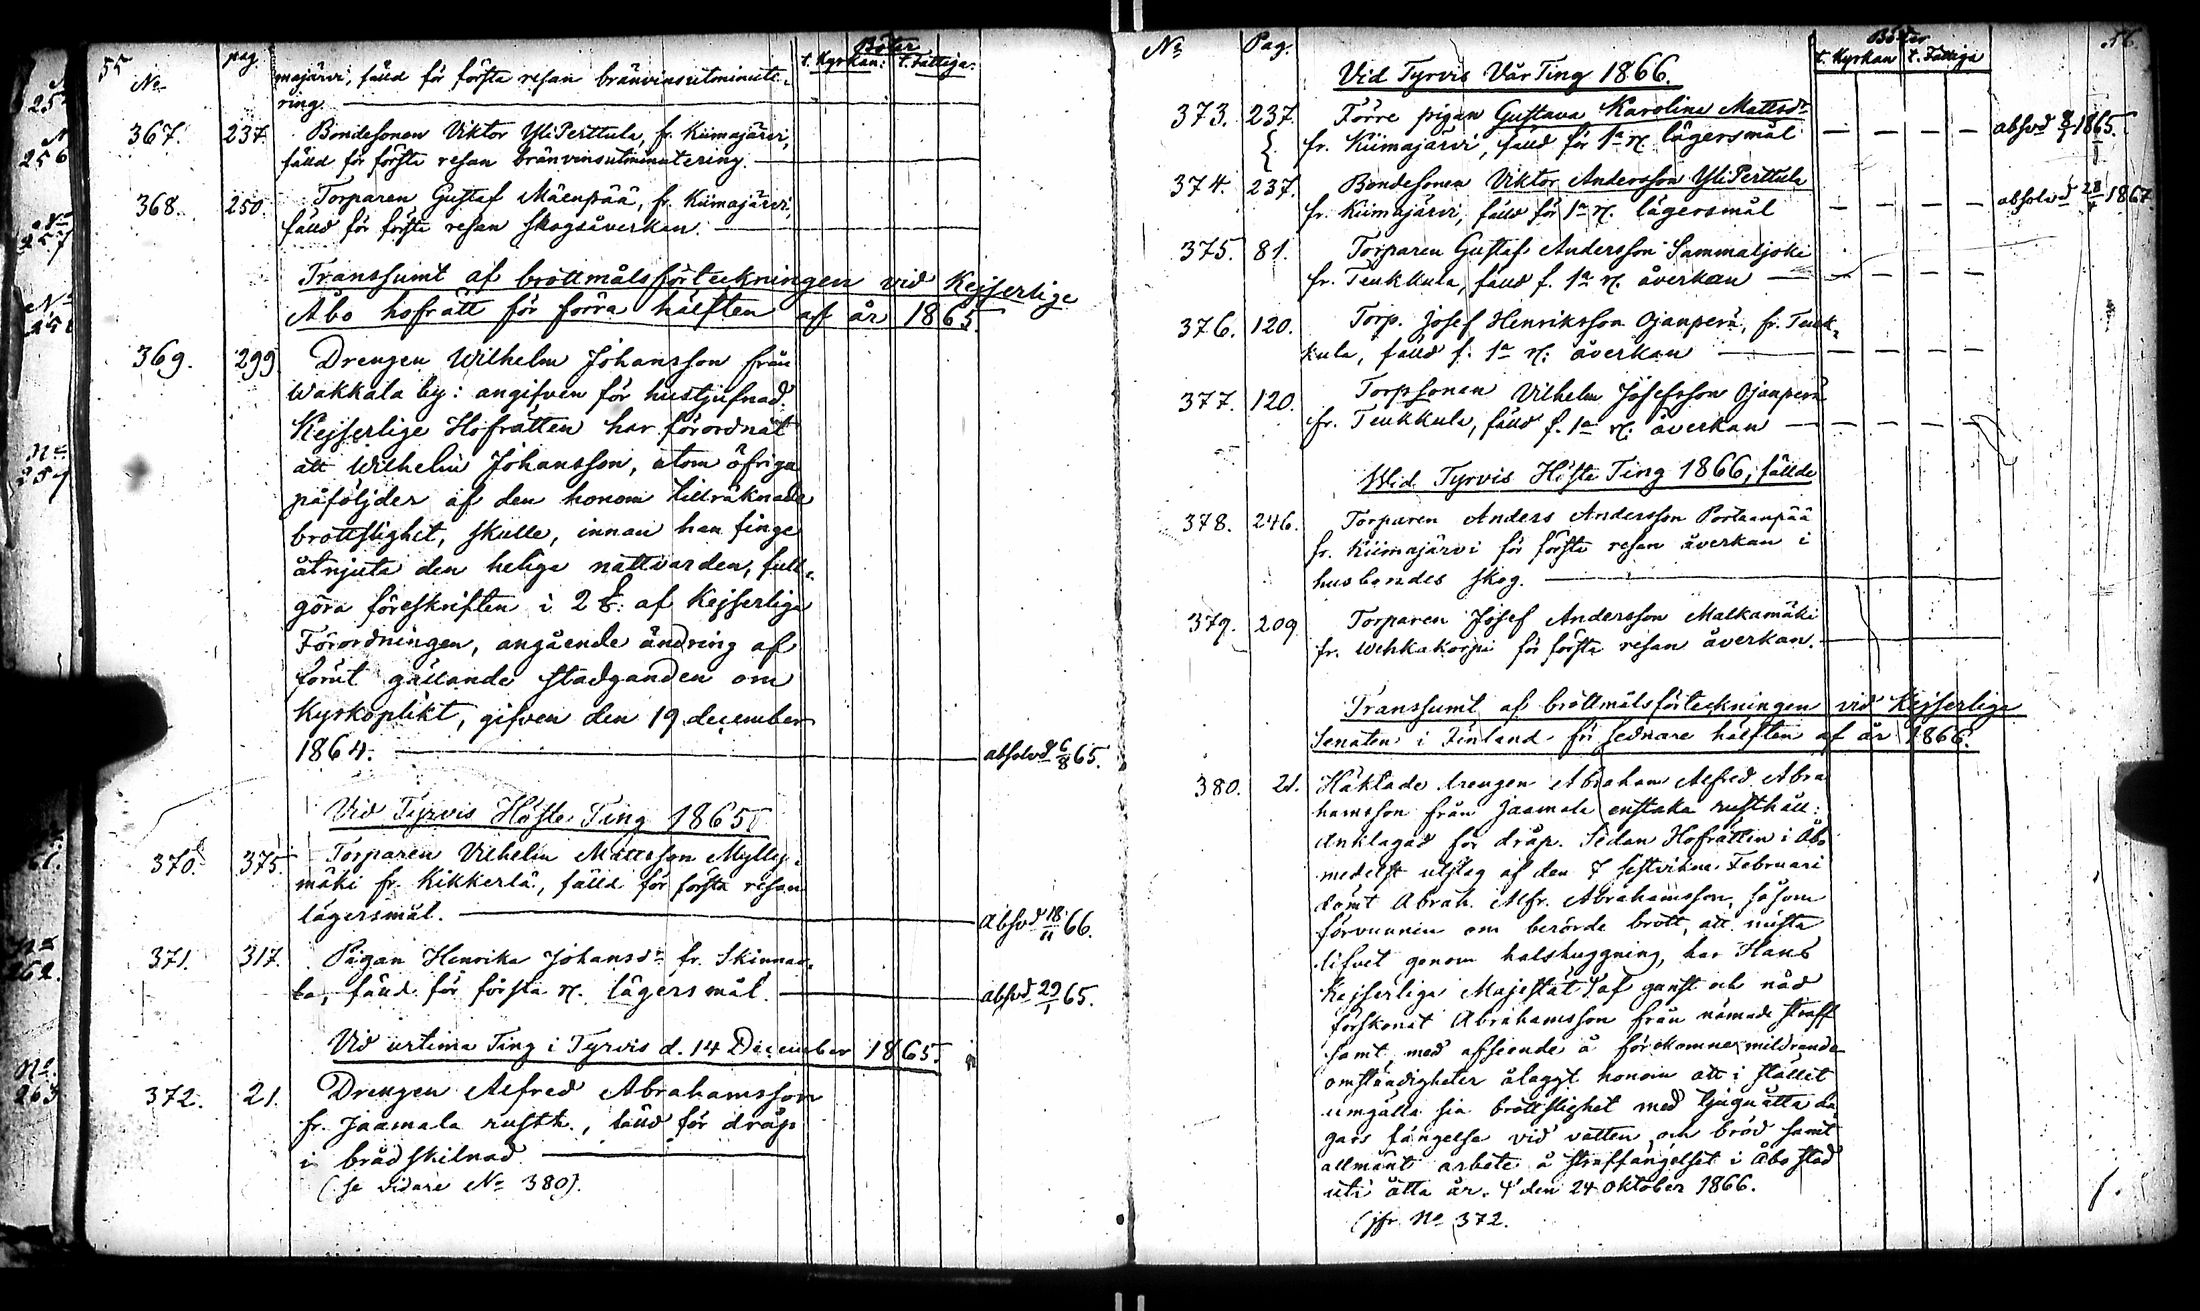 55
No pag. Böter
t. Kyrkan: t. Fattiga:
majärvi, fälld för första resan bränvinsutminute-
ring.
367. 237. Bondesonen Viktor YliPerttula, fr. Kiimajärvi,
fälld för första resan bränvinsutminutering.
368. 250. Torparen Gustaf Mäenpää, fr. Kiimajärvi,
fälld för första resan skogsåverkan.
Transsumt af brottmålsförteckningen vid Kejserlige
Åbo hofrätt för förra hälften af år 1865.
369. 299 Drengen Wilhelm Johansson från
Wakkala by: angifven för hustjufnad.
Kejserlige Hofrätten har förordnat
att Wilhelm Johansson, utom öfriga
påföljder af den honom tillräknade
brottslighet, skulle, innan han finge
åtnjuta den heliga nattvarden, full-
göra föreskriften i 2 §. af Kejserliga
Förordningen, angående ändring af
förut gällande stadganden om
Kyrkoplikt, gifven den 19 december
1864. absolvd 6/8 65.
Vid Tyrvis Höste Ting 1865
370. 375. Torparen Vilhelm Mattsson Mylly-
mäki fr. Kikkerlä, fälld för första resan
lägersmål. Absvd 18/11 66.
371. 317. Pigan Henrika Johansdr fr. Skinnar-
la, fälld för första r. lägersmål. absvd 29/1 65.
Vid urtima Ting i Tyrvis d. 14 December 1865.
372. 21. Drengen Alfred Abrahamsson
fr. Jaamala rusth., fälld för dråp
i bråd skilnad
(se vidare No 380).
56.
No Pag. Böter
t. Kyrkan t. Fattiga
Vid Tyrvis Vår Ting 1866.
373. 237. Förre pigan Gustava Karolina Mattsdr
fr. Kiimajärvi, fälld för 1a r. lägersmål absvd 8/1 1865.
374. 237. Bondesonen Viktor Andersson YliPerttula
fr. Kiimajärvi, fälld för 1a r. lägersmål absolvd 28/4 1867.
375. 81. Torparen Gustaf Andersson Sammaljoki
fr. Teukkula, fälld f. 1a r. åverkan
376. 120. Torp. Josef Henriksson Ojanperä, fr. Teuk-
kula, fälld f. 1a r. åverkan
377. 120. Torpsonen Vilhelm Josefsson Ojanperä
fr. Teukkula, fälld f. 1a r. åverkan
Wid Tyrvis Höste Ting 1866, fällde
378. 246. Torparen Anders Andersson Portaanpää
fr. Kiimajärvi för första resan åverkan i
husbondes skog.
379. 209 Torparen Josef Andersson Malkamäki
fr. Wehkakorpi för första resan åverkan.
Transsumt af brottmålsförteckningen vid Kejserliga
Senaten i Finland för sednare hälften af år 1866.
380. 21. Häktade drengen Abraham Alfred Abra
hamsson från Jaamala enstaka rusthåll:
anklagad för dråp. Sedan Hofrätten i Åbo
medelst utslag af den 7 sistvikne Februari
dömt Abrah. Alfr. Abrahamsson, såsom
förvunnen om berörde brott, att mista
lifvet genom halshuggning, har Hans
Kejserliga Majestät af gunst och nåd
förskonat Abrahamsson från nämnde straff
samt, med afseende å förekomne mildrande
omständigheter ålaggt honom att i stället
umgälla sin brottslighet med tjuguåtta da-
gars fängelse vid vatten och bröd samt
allmänt arbete å straffängelset i Åbo stad
uti åtta år. den 24 Oktober 1866.
(jfr. No 372.